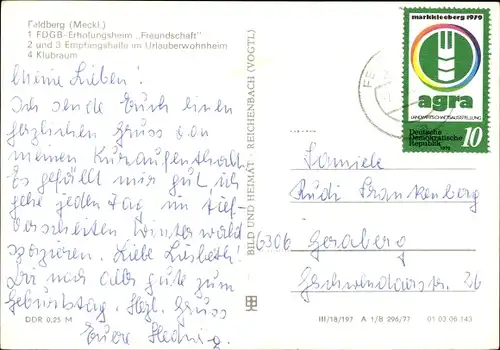 Feldberg (Meckl.)
1 FDGB-Erholungsheim „Freundschaft"
2 und 3 Empfangshalle im Urlauberwohnheim
4 Klubraum
Meine Lieben!
Ich sende Euch einen
herzlichen Gruss von
meinem Kuraufenthalt.
Es gefällt mir gut ich
gehe jeden Tag im tief-
verschneiten Winterwald
spazieren. Liebe Lisbeth!
Dir noch alles gute zum
Geburtstag. Hzl. Gruss
Euere Hedwig.
DDR 0,25 M
BILD UND HEIMAT · REICHENBACH (VOGTL)
markkleeberg 1979
agra
LANDWIRTSCHAFTSAUSSTELLUNG
Deutsche
Demokratische
Republik
1979
10
Familie
Rudi Frankenberg
6306 Geraberg
Geschwendaerstr. 26
III/18/197 A 1/B 296/77 01 03 06 143